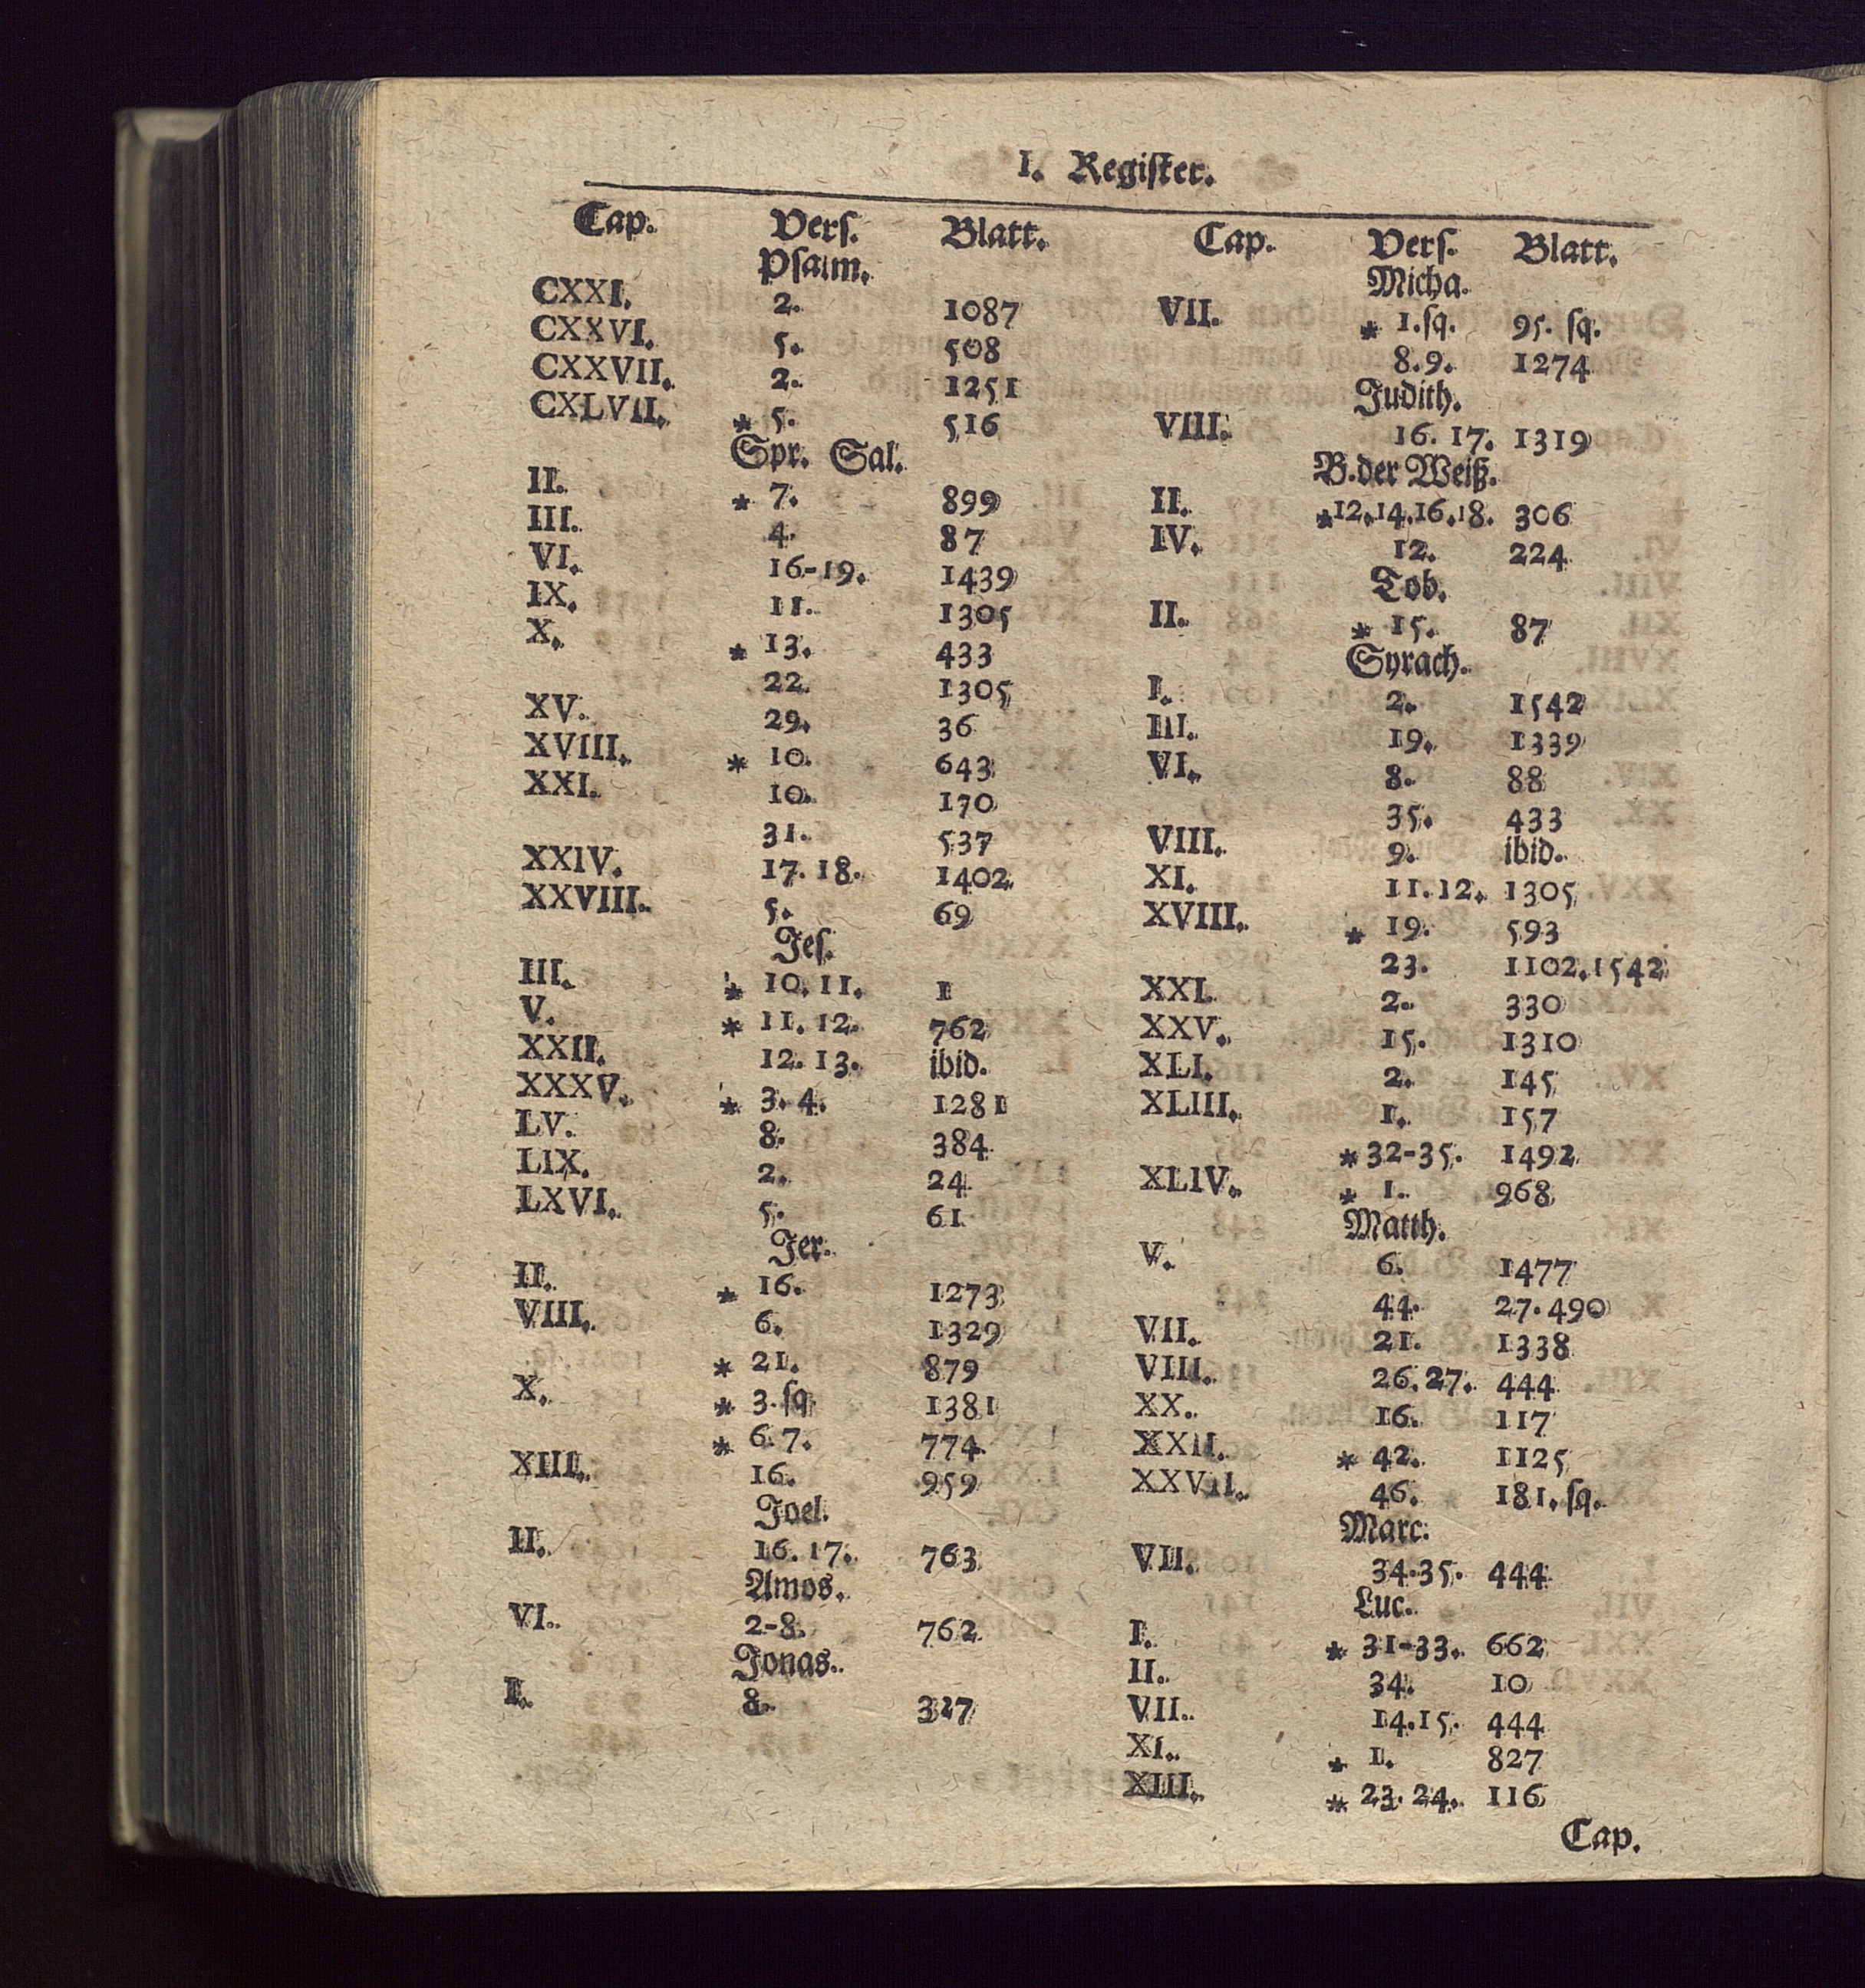 I. Register.
Cap. Vers. Blatt.
Psalm.
CXXI. 2. 1087
CXXVI. 5. 508
CXXVII. 2. 1251
CXLVII. * 5. 516
Spr. Sal.
II. * 7. 899
III. 4. 87
VI. 16-19. 1439
IX. 11. 1305
X. * 13. 433
22. 1305
XV. 29. 36
XVIII. * 10. 643
XXI. 10. 170
31. 537
XXIV. 17. 18. 1402
XXVIII. 5. 69
Jes.
III. * 10. 11. 1
V. * 11. 12. 762
XXII. 12. 13. ibid.
XXXV. * 3. 4. 1281
LV. 8. 384
LIX. 2. 24
LXVI. 5. 61
Jer.
II. * 16. 1273
VIII. 6. 1329
* 21. 879
X. * 3. sq. 1381
* 6. 7. 774
XIII. 16. 959
Joel.
II. 16. 17. 763
Amos.
VI. 2-8. 762
Jonas.
I. 8. 327
Cap. Vers. Blatt.
Micha.
VII. * 1. sq. 95. sq.
8. 9. 1274
Judith.
VIII. 16. 17. 1319
B. der Weiß.
II. *12.14.16.18. 306
IV. 12. 224
Tob.
II. * 15. 87
Syrach.
I. 2. 1542
III. 19. 1339
VI. 8. 88
35. 433
VIII. 9. ibid.
XI. 11. 12. 1305
XVIII. * 19. 593
23. 1102. 1542
XXI. 2. 330
XXV. 15. 1310
XLI. 2. 145
XLIII. 1. 157
* 32-35. 1492
XLIV. * 1. 968
Matth.
V. 6. 1477
44. 27. 490
VII. 21. 1338
VIII. 26. 27. 444
XX. 16. 117
XXII. * 42. 1125
XXVII. 46. 181. sq.
Marc.
VII. 34. 35. 444
Luc.
I. * 31-33. 662
II. 34. 10
VII. 14. 15. 444
XI. * 1. 827
XIII. * 23. 24. 116
Cap.